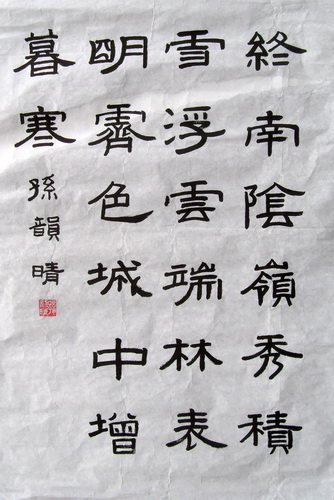 終南陰嶺秀積
雪浮雲端林表
明霽色城中增
暮寒
孫韻晴